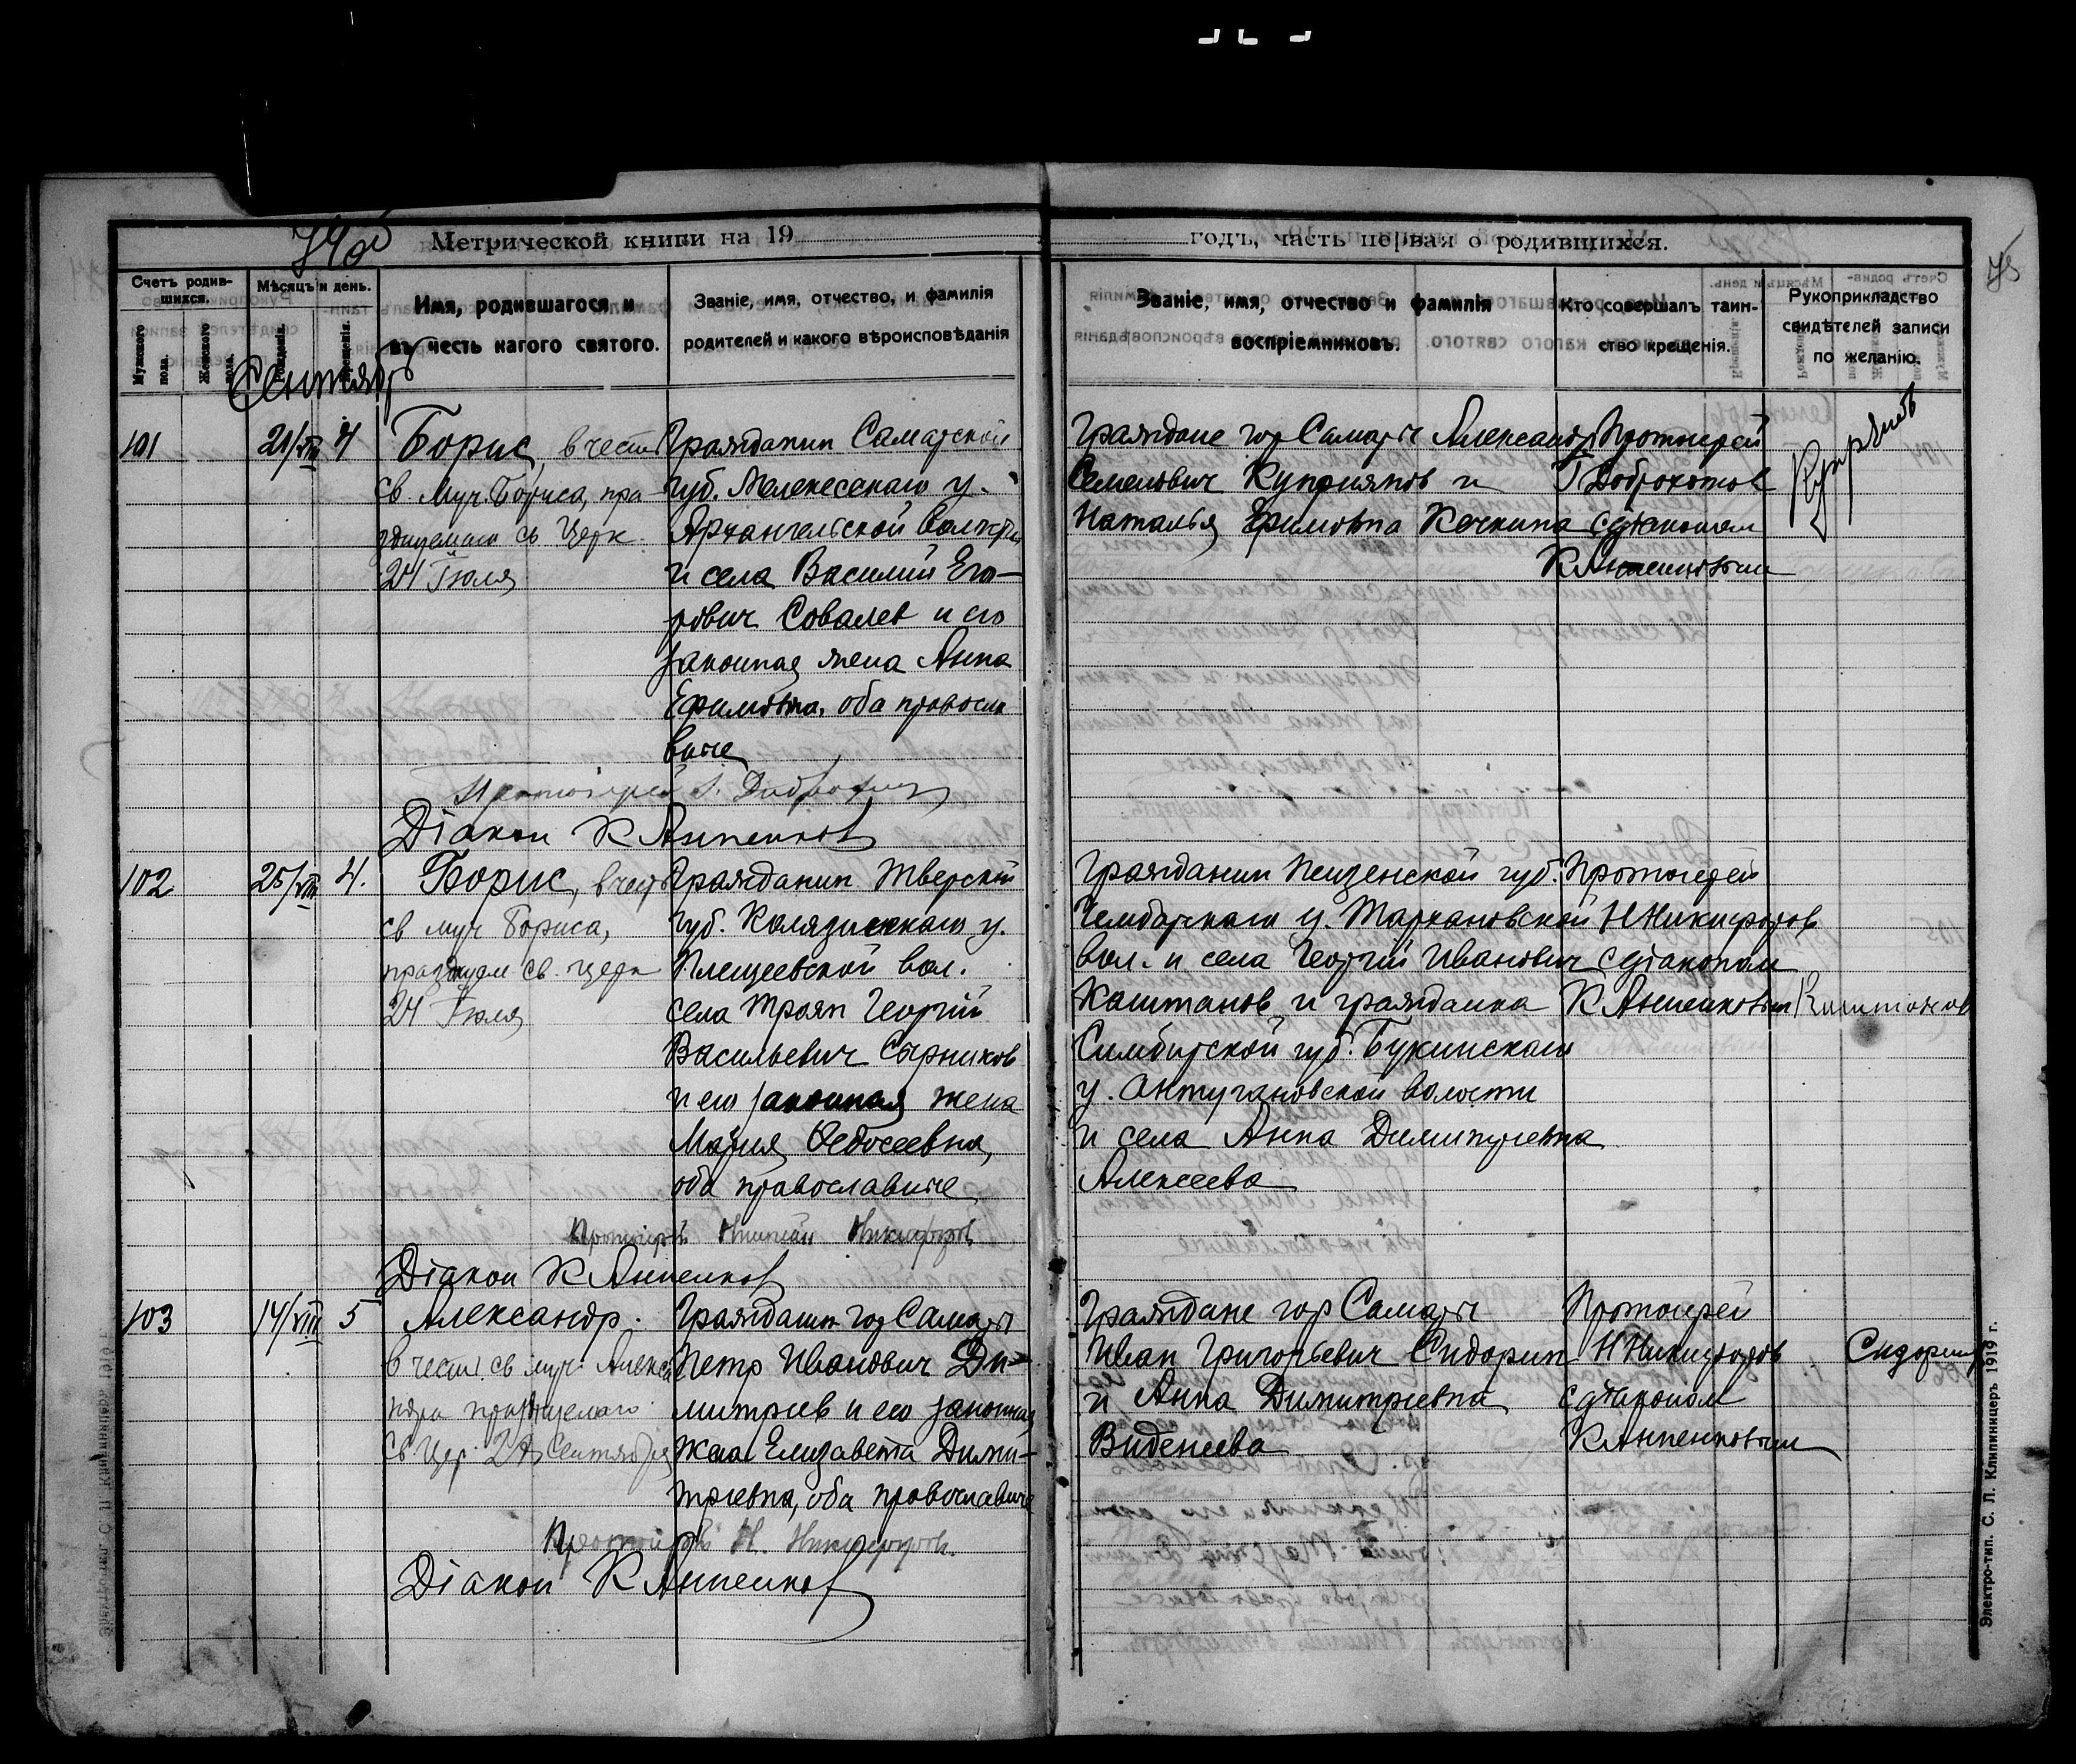 74об
Метрической книги на 19
годъ, часть первая о родившихся.
75
Счетъ родив-
шихся.
Мужского пола.
Женского пола.
Мѣсяцъ и день.
Рожденія.
Крещенія.
Имя, родившагося и
въ честь кагого святого.
Званіе, имя, отчество, и фамилія
родителей и какого вѣроисповѣданія
Званіе, имя, отчество и фамилія
воспріемниковъ.
Кто совершалъ таин-
ство крещенія.
Рукоприкладство
свидѣтелей записи
по желанію.
Сентябрь
101
21/VIII
4
Борис, в честь
св. муч. Бориса, пра-
зднуемаго св. Церк.
24 Іюля
Гражданин Самарской
губ. Мелекесскаго у.
Архангельской волости
и села Василий Его-
рович Совалев и его
законная жена Анна
Ефимовна, оба правосла
вные
Граждане гор Самары Александр
Семенович Куприянов и
Наталья Ефимовна Кечкина
Протоиерей
Г Доброхотов
с діаконом
К Анненковым
Куприянов
Протоіерей Г. Доброхотов
Діакон К Анненков
102
25/VIII
4.
Борис, в честь
св муч Бориса,
празднуем св. церк
24 Іюля
Гражданин Тверской
губ. Колязинскаго у.
Плещеевской вол.
села Троян Георгий
Васильевич Сырников
и его законная жена
Мария Федосеевна,
оба православные
Гражданин Пензенской губ.
Чембарскаго у. Тархановской
вол. и села Георгий Иванович
Каштанов и гражданка
Симбирской губ. Буинскаго
у. Антугановской волости
и села Анна Димитриевна
Алексеева
Протоиерей
Н Никифоров
с діаконом
К Анненковым
Каштанов
Протоіерей Никифоров
Діакон К Анненков
103
14/VIII
5
Александр.
в честь св муч. Алекса
ндра празднуемаго
св. Цер. Сентября
Гражданин гор Самары
Петр Иванович Ди-
митриев и его законная
жена Елизавета Дими-
триевна, оба православные
Граждане гор Самары
Иван Григорьевич Сидорин
и Анна Димитриевна
Виденеева
Протоиерей
Н Никифоров
с діаконом
К Анненковым
Сидорин
Протоіерей Н. Никифоров.
Діакон К Анненков
Электро-тип. С. Л. Клипиницеръ 1919 г.